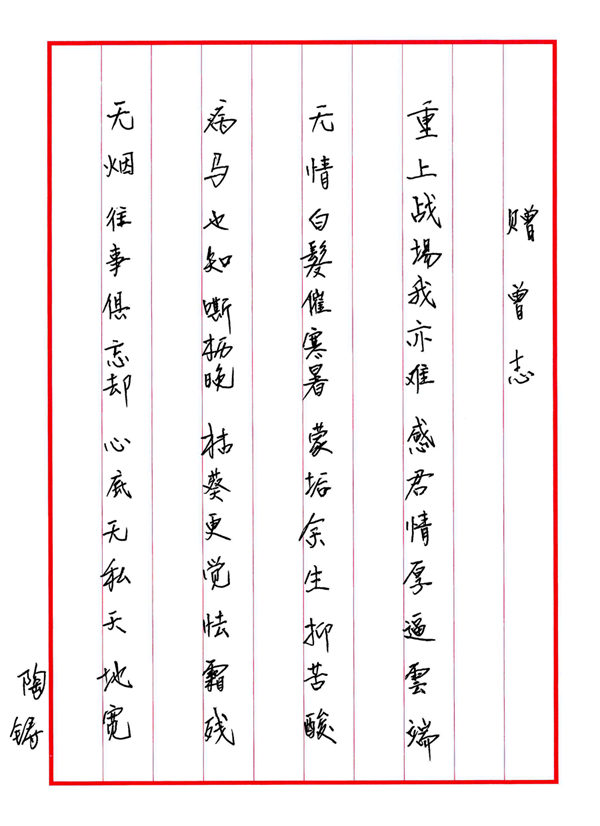 赠曾志
重上战場我亦难 感君情厚逼雲端
无情白髮催寒暑 蒙垢余生抑苦酸
病马也知嘶枥晚 枯葵更觉怯霜残
无烟往事俱忘却 心底无私天地宽
陶铸